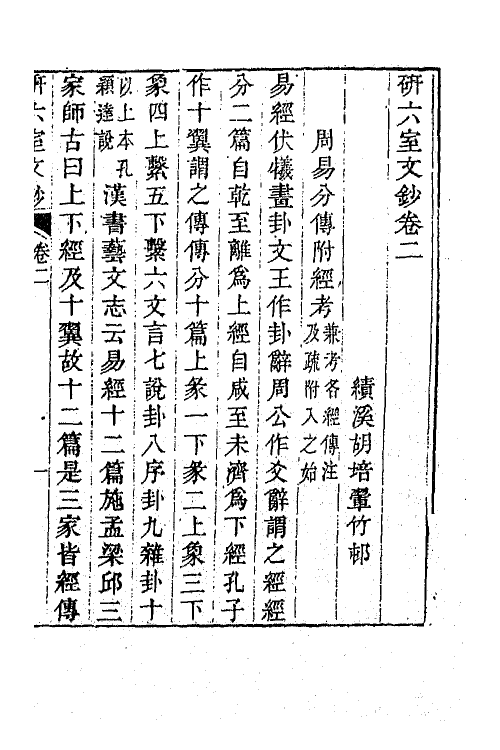 研六室文鈔卷二
績溪胡培翬竹邨
周易分傳附經考兼考各經傳注及疏附入之始
易經伏犧畫卦文王作卦辭周公作爻辭謂之經經
分二篇自乾至離爲上經自咸至未濟爲下經孔子
作十翼謂之傳傳分十篇上彖一下彖二上象三下
象四上繫五下繫六文言七說卦八序卦九雜卦十
以上本孔穎達說漢書藝文志云易經十二篇施孟梁邱三
家師古曰上下經及十翼故十二篇是三家皆經傳
研六室文鈔 卷二 一